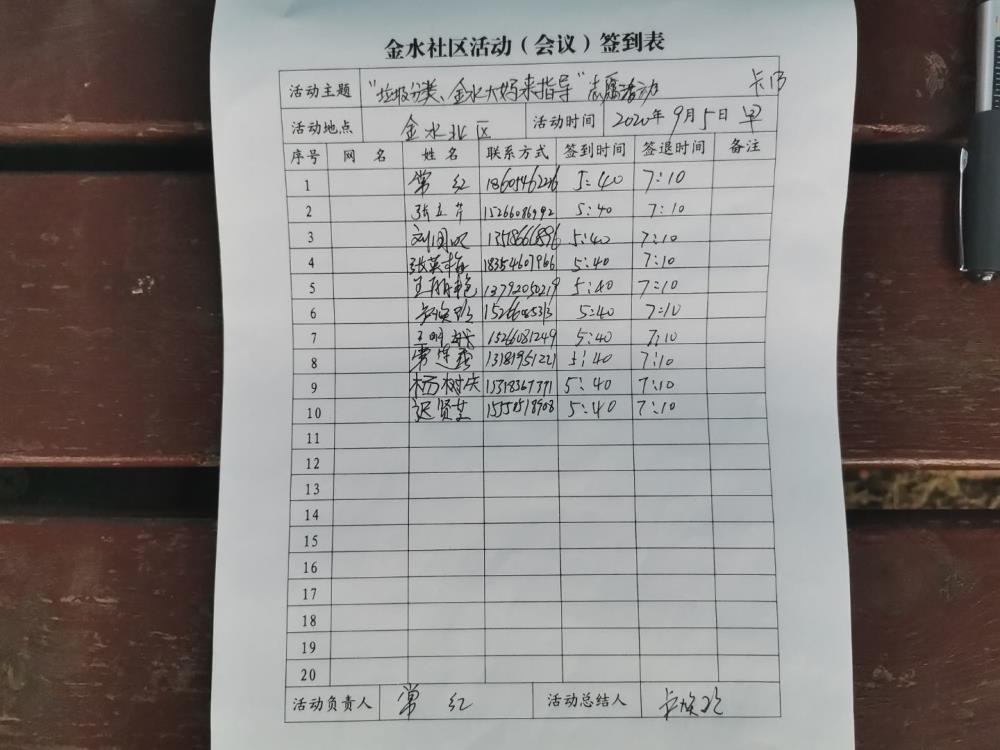 金水社区活动（会议）签到表
活动主题 "垃圾分类、金水大妈来指导"志愿活动
活动地点 金水北区 活动时间 2020年9月5日 早
序号 网名 姓名 联系方式 签到时间 签退时间 备注
1 常红 5:40 7:10
2 张立芹 15266086992 5:40 7:10
3 5:40 7:10
4 张英梅 18354607966 5:40 7:10
5 王丽艳 13792050219 5:40 7:10
6 5:40 7:10
7 15266081249 5:40 7:10
8 13181951221 5:40 7:10
9 杨树庆 15318367371 5:40 7:10
10 迟贤芝 5:40 7:10
11
12
13
14
15
16
17
18
19
20
活动负责人 常红 活动总结人